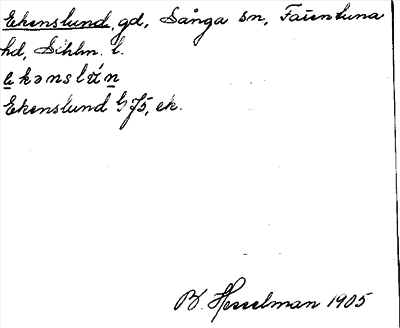 Ekenslund, gd, Sånga sn, Färentuna
hd, Sthlm. l.
Ekenslund G 75, ek.
B. Hesselman 1905